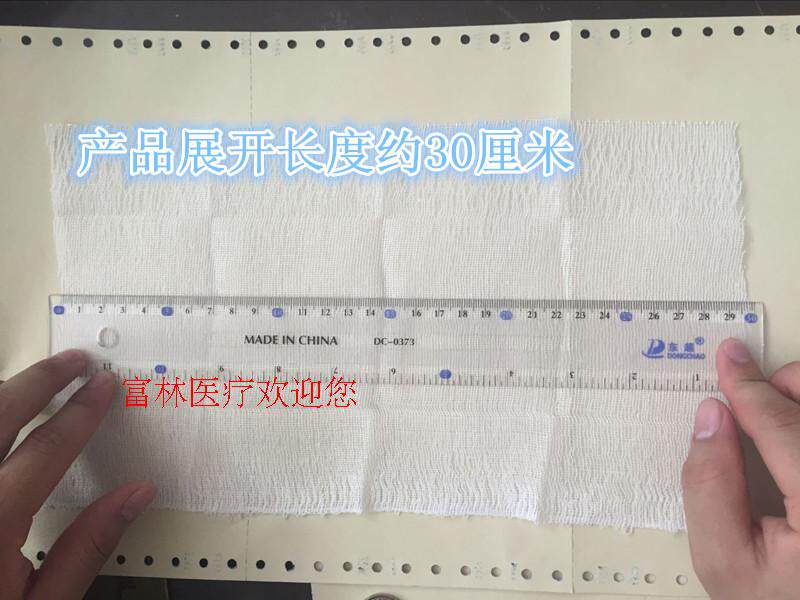 产品展开长度约30厘米
0 1 2 3 4 5 6 7 8 9 10 11 12 13 14 15 16 17 18 19 20 21 22 23 24 25 26 27 28 29 30
MADE IN CHINA DC-0373 东超®
DONGCHAO
11 10 9 8 7 6 5 4 3 2 1
富林医疗欢迎您